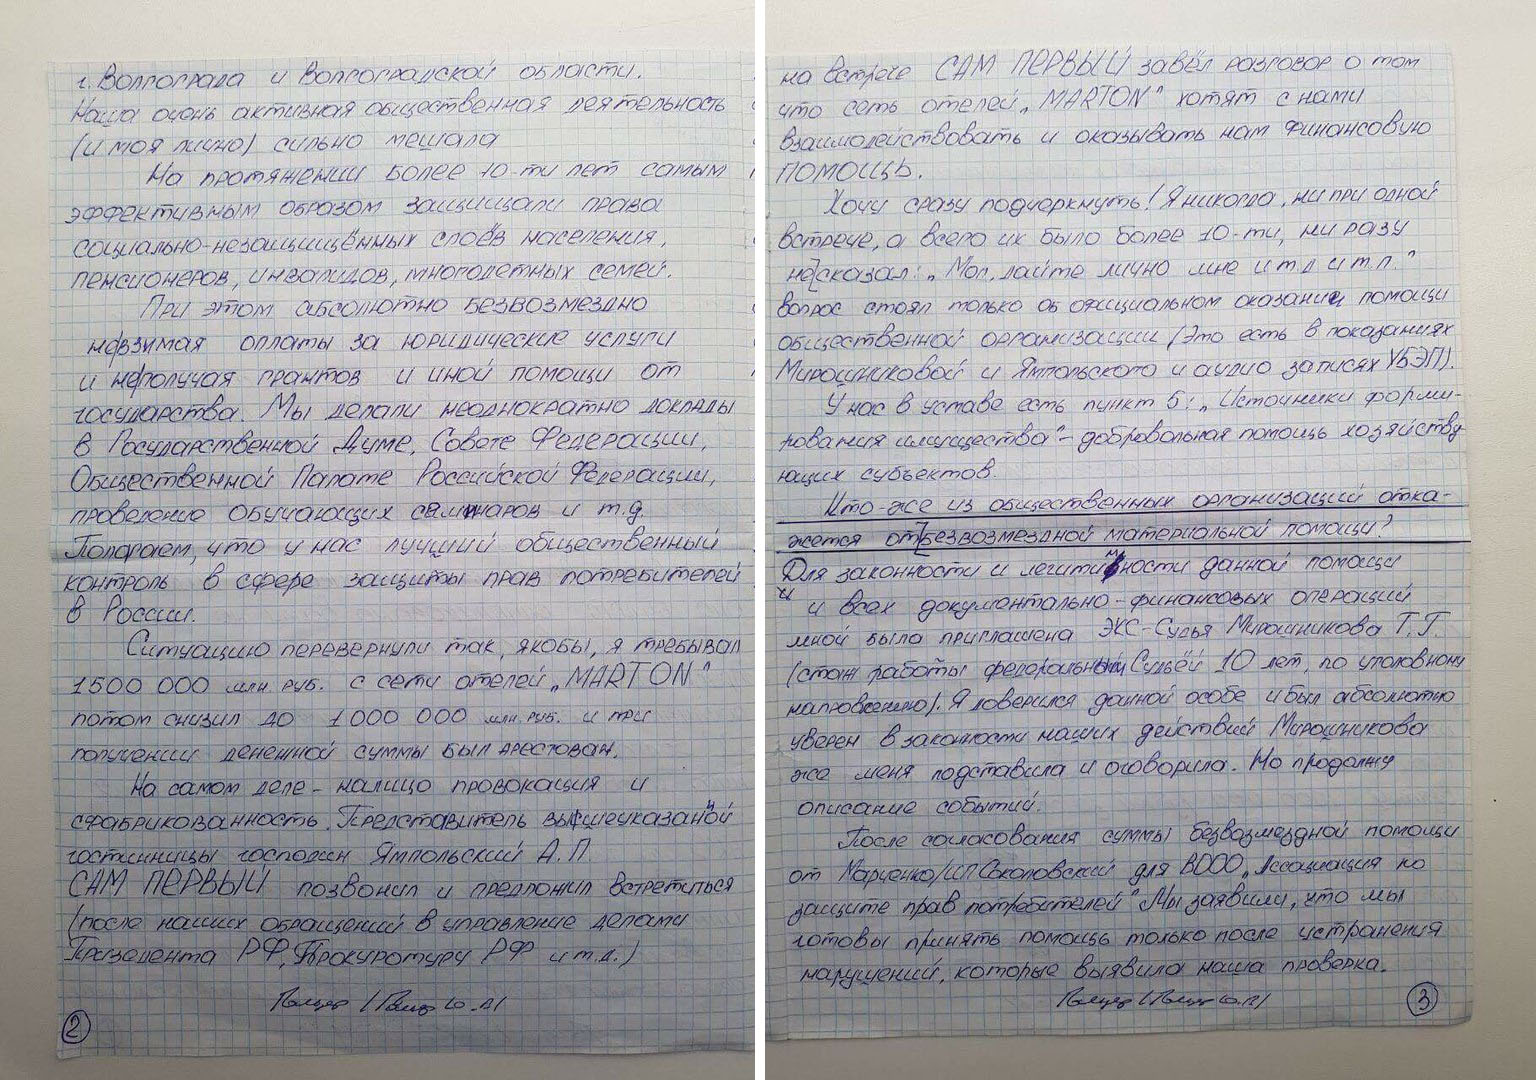 г. Волгограда и Волгоградской области.
Наша очень активная общественная деятельность
(и моя лично) сильно мешала
На протяжении более 10-ти лет самым
эффективным образом защищали права
социально-незащищённых слоёв населения,
пенсионеров, инвалидов, многодетных семей.
При этом абсолютно безвозмездно
не взимая оплаты за юридические услуги
и не получая грантов и иной помощи от
государства. Мы делали неоднократно доклады
в Государственной Думе, Совете Федерации,
Общественной Палате Российской Федерации,
проведение обучающих семинаров и т.д.
Полагаем, что у нас лучший общественный
контроль в сфере защиты прав потребителей
в России.
Ситуацию перевернули так, якобы, я требывал
1500 000 млн. руб. с сети отелей „MARTON"
потом снизил до 1 000 000 млн. руб. и при
получении денежной суммы был арестован.
На самом деле – налицо провокация и
сфабрикованность. Представитель вышеуказанной
гостинницы господин Ямпольский А.П.
САМ ПЕРВЫЙ позвонил и предложил встретиться
(после наших обращений в управление делами
Президента РФ, Прокуратуру РФ и т.д.)
2
на встрече САМ ПЕРВЫЙ завёл разговор о том
что сеть отелей „MARTON" хотят с нами
взаимодействовать и оказывать нам финансовую
ПОМОЩЬ.
Хочу сразу подчеркнуть! Я никогда, ни при одной
встрече, а всего их было более 10-ти, ни разу
не сказал: „Мол, дайте лично мне и т.д и т.п."
вопрос стоял только об официальном оказании помощи
общественной организации (Это есть в показаниях
Мирошниковой и Ямпольского и аудио записях УБЭП).
У нас в уставе есть пункт 5: „Источники форми-
рования имущества" – добровольная помощь хозяйству
ющих субъектов.
Кто-же из общественных организаций отка-
жется от безвозмездной материальной помощи?
Для законности и легитимности данной помощи
и и всех документально-финансовых операций
мной была приглашена ЭКС-Судья Мирошникова Т.Г.
(стаж работы федеральный Судьёй 10 лет, по уголовному
направлению). Я доверился данной особе и был абсолютно
уверен в законности наших действий Мирошникова
же меня подставила и оговорила. Но продолжу
описание событий.
После согласования суммы безвозмездной помощи
от Марченко/ИП Соколовский для ВООО „Ассоциация по
защите прав потребителей" Мы заявили, что мы
готовы принять помощь только после устранения
нарушений, которые выявила наша проверка.
3